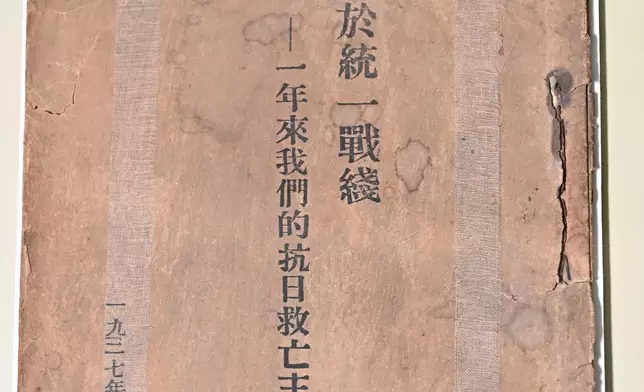 於統一戰綫
—一年來我們的抗日救亡主
一九三七年